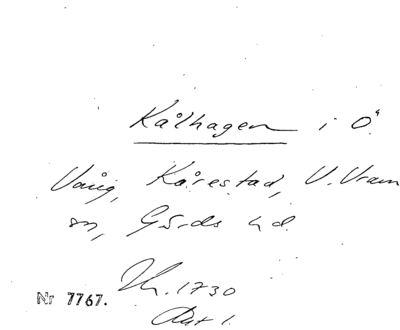 Kålhagen i Ö.
Vång, Kårestad, V. Vram
sn, Gärds hd.
1730
Akt 1.
Nr 7767.